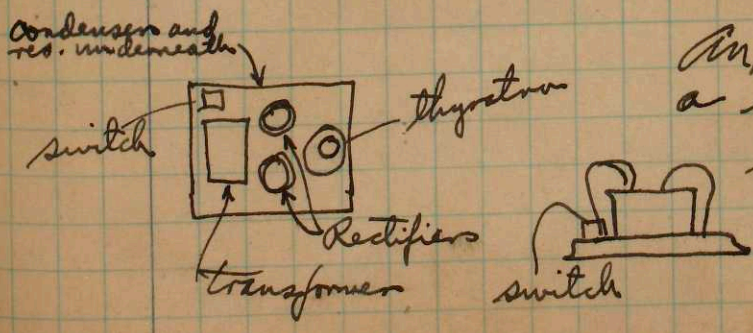 condensers and
res. underneath
switch
thyratron
Rectifiers
transformer
switch
a